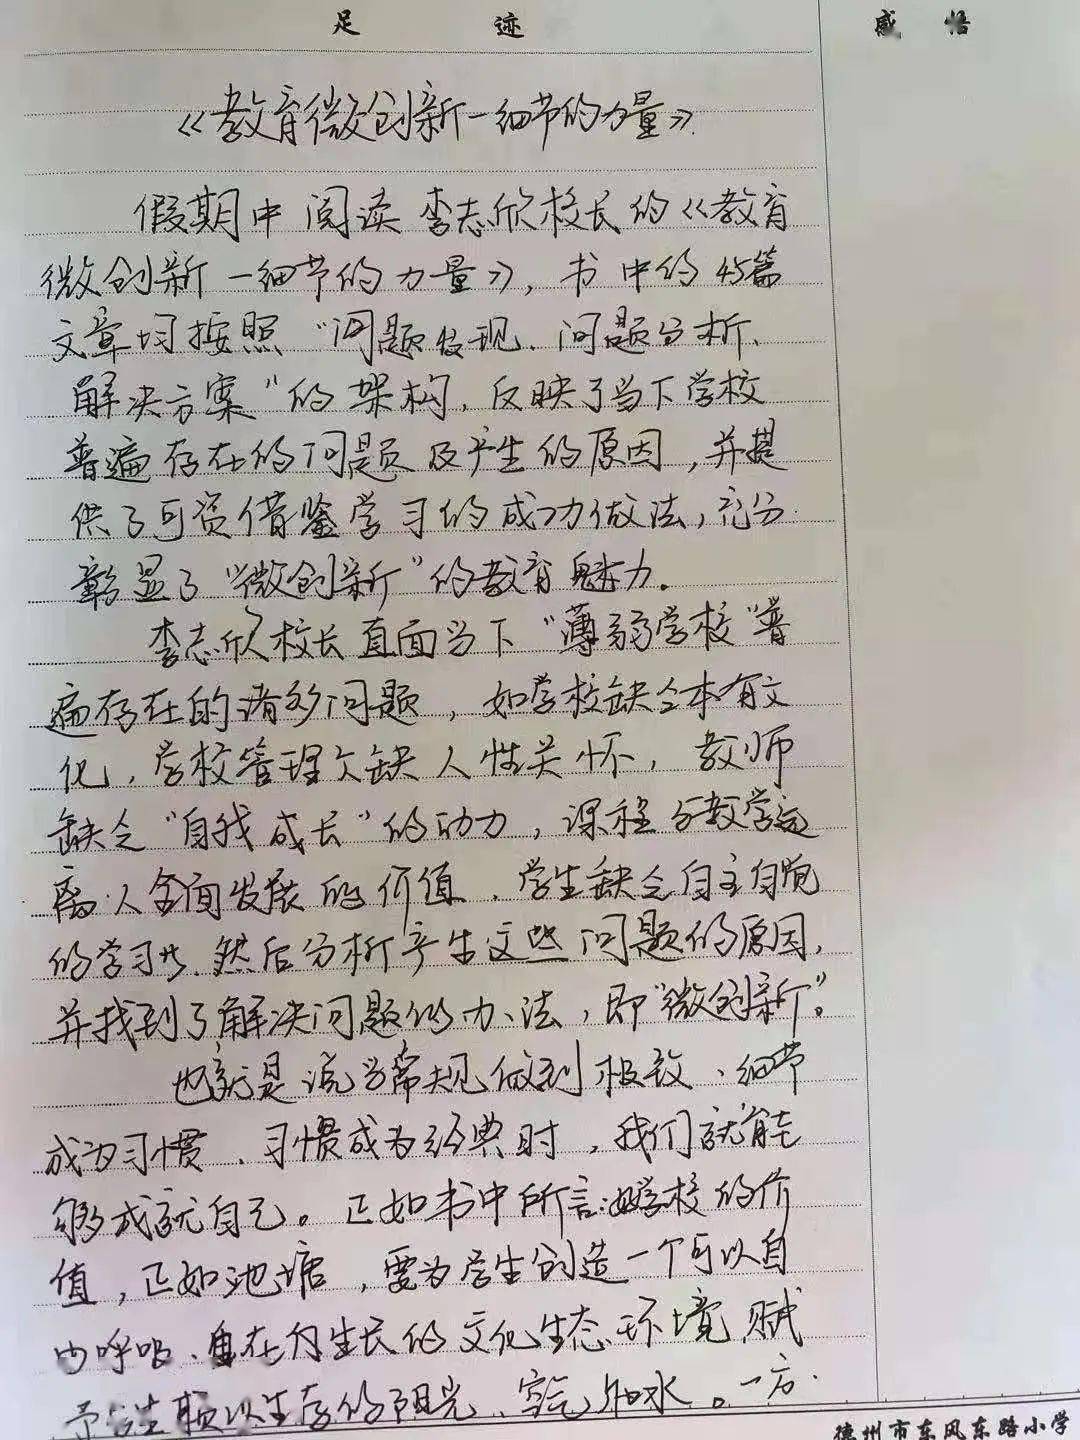 足 迹 感 悟
《教育微创新一细节的力量》
假期中阅读李志欣校长的《教育
微创新一细节的力量》,书中的45篇
文章均按照“问题发现、问题分析、
解决方案”的架构,反映了当下学校
普遍存在的问题及产生的原因,并提
供了可资借鉴学习的成功做法,充分
彰显了“微创新”的教育魅力。
李志欣校长直面当下“薄弱学校”普
遍存在的诸多问题,如学校缺乏本有文
化,学校管理欠缺人性关怀,教师
缺乏“自我成长”的动力,课程与教学远
离人全面发展的价值、学生缺乏自主自觉
的学习等、然后分析产生这些问题的原因,
并找到了解决问题的办法,即“微创新”。
也就是说当常规做到极致、细节
成为习惯、习惯成为经典时,我们就能
够成就自己。正如书中所言:学校的价
值,正如池塘,要为学生创造一个可以自
由呼吸、自在的生长的文化生态环境赋
予学生赖以生存的阳光、空气和水。一方
德州市东风东路小学